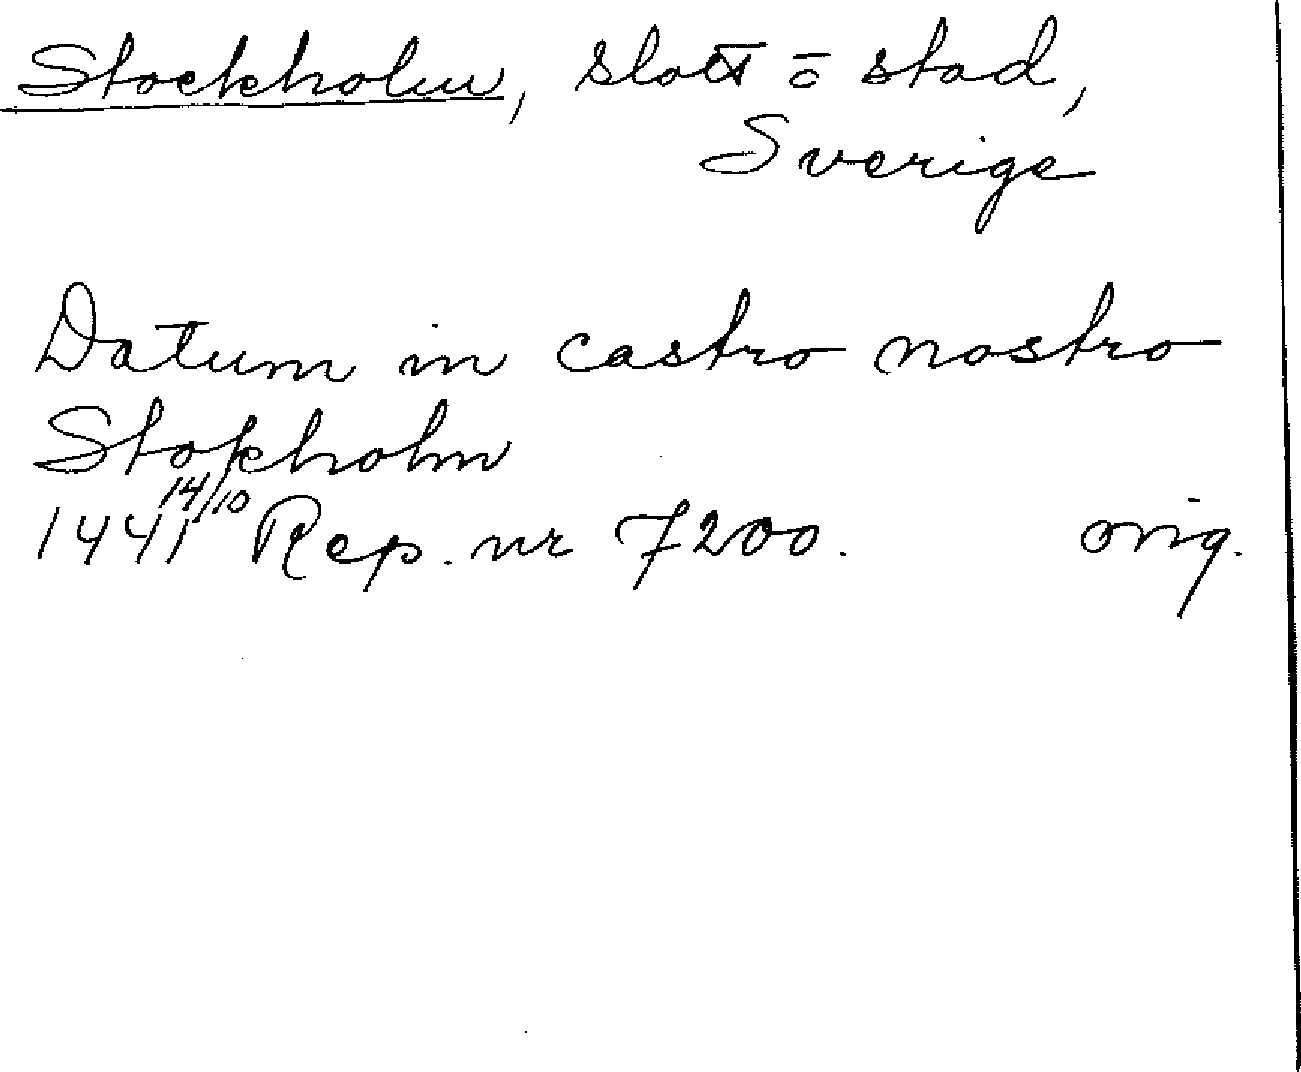 Stockholm, slott ō stad,
Sverige
Datum in castro nostro
Stokholm
1441 14/10 Rep. nr 7200. orig.